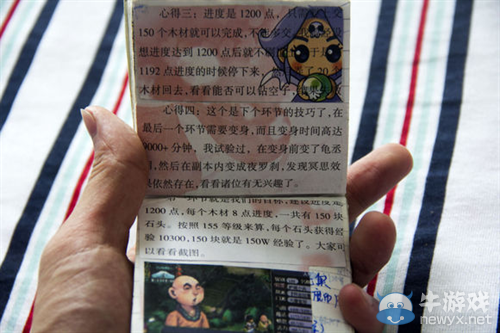 心得三：进度是1200点，只需要上交
150个木材就可以完成，不
想进度达到1200点后就不
1192点进度的时候停下来，
木材回去，看看能否可以钻空子，
心得四：这个是下个环节的技巧了，在
最后一个环节需要变身，而且变身时间高达
9000+分钟，我试验过，在变身前变了龟丞
，然后在副本内变成夜罗刹，发现冥思效
依然存在，看看诸位有无兴趣了。
一环节就是我们的目标，建设进度是
1200点，每个木材8点进度，一共有150块
石头。按照155等级来算，每个石头获得经
验10300，150块就是150W经验了。大家可
以看看截图。
牛游戏
newyx.net